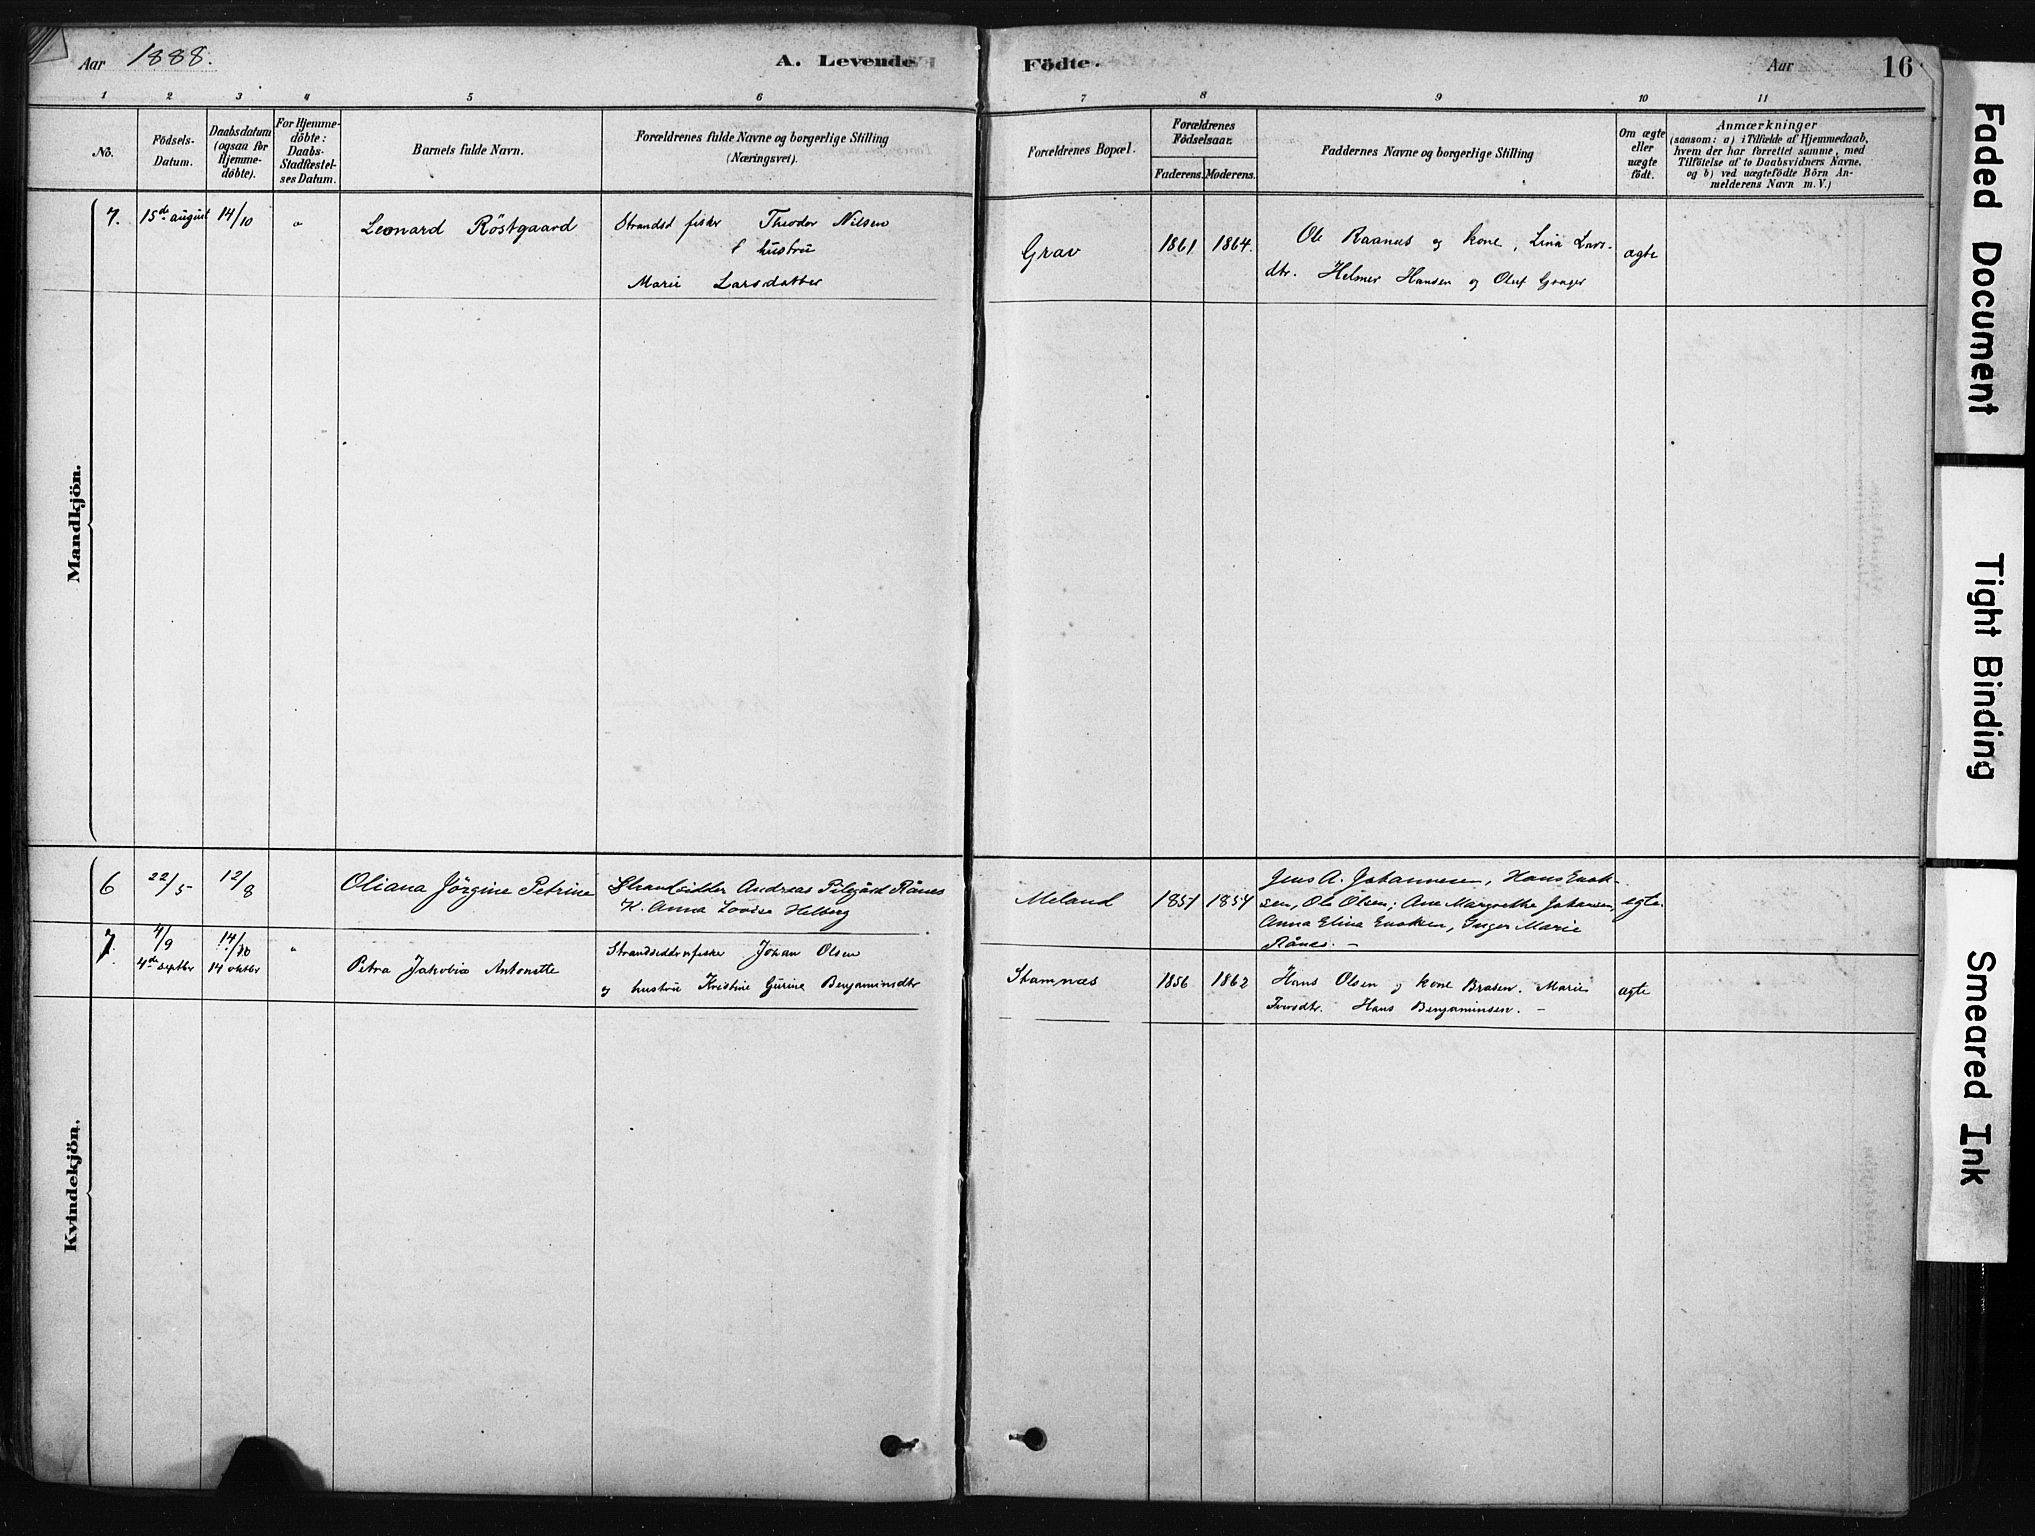 Aar 1888. A. Levende Födte. Aar 16
1 2 3 4 5 6 7 8 9 10 11
No.
Födsels-
Datum.
Daabsdatum
(ogsaa for
Hjemme-
döbte).
For Hjemme-
döbte:
Daabs-
Stadfæstel-
ses Datum.
Barnets fulde Navn.
Forældrenes fulde Navne og borgerlige Stilling
(Næringsvei).
Forældrenes Bopæl.
Forældrenes
Födselsaar.
Faderens. Moderens.
Faddernes Navne og borgerlige Stilling
Om ægte
eller
uægte
födt.
Anmærkninger
(saasom: a) i Tilfælde af Hjemmedaab,
hvem der har forrettet samme, med
Tilföielse af to Daabsvidners Navne,
og b) ved uægtefödte Börn An-
melderens Navn m. V.)
Mandkjön.
7. 15de august 14/10 " Leonard Röstgaard
Strandsd fisker Theodor Nilsen
& hustru
Marie Larsdatter
Grav 1861 1864.
Ole Raanes og kone, Lina Lars-
dtr. Helmer Hansen og Oluf Granger
ægte
Kvindekjön.
6 22/5 12/8 Oliana Jörgine Petrine
Strandsidder Andreas Pilegård Rånes
H. Anna Lovise Helberg
Meland 1851 1854
Jens A. Johannesen, Hans Enok-
sen, Ole Olsen; Ane Margrethe Johansen,
Anna Elina Enoksen, Inger Marie
Rånes. –
egte.
7. 4/9 14/10 "
4de septbr 14 oktbr
Petra Jakobia Antonette
Strandsidder fisker Johan Olsen
og hustru Kristine Gurine Benjaminsdtr
Stamnæs 1856 1862
Hans Olsen og kone Brasen. Marie
Iversdtr. Hans Benjaminsen. –
ægte
Faded Document
Tight Binding
Smeared Ink